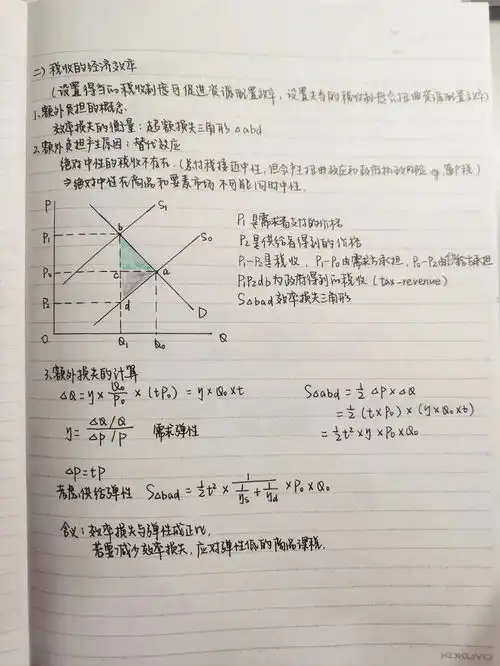 二) 税收的经济效率
(设置得当的税收制度可促进资源配置效率, 设置失当的税收制度会扭曲资源配置效率)
1.额外负担的概念
效率损失的衡量: 超额损失三角形 △abd
2.额外负担产生原因: 替代效应
绝对中性的税收不存在.(总付税接近中性, 但会产生扭曲效应和政府执政风险 eg.
⇒绝对中性在商品和要素市场 不可能同时中性.
P
P₁
P₀
P₂
O
Q₁
Q₀
Q
S₁
S₀
D
b
c
a
d
P₁ 是需求者支付的价格
P₂ 是供给者得到的价格
P₁-P₂是税收, P₁-P₀由需求方承担, P₀-P₂由供给方承担
P₁P₂db 为政府得到的税收 (tax-revenue)
S△bad 效率损失三角形
3.额外损失的计算
△Q = η × Q₀/P₀ × (tP₀) = η × Q₀ × t
η = (△Q/Q)/(△P/P) 需求弹性
S△abd = ½ △P × △Q
= ½ (t×P₀) × (η×Q₀×t)
= ½ t² × η × P₀ × Q₀
△P = tP
考虑供给弹性 S△bad = ½t² × 1/(1/ηs + 1/ηd) × P₀ × Q₀
含义: 效率损失与弹性成正比,
若要减少效率损失, 应对弹性低的商品课税.